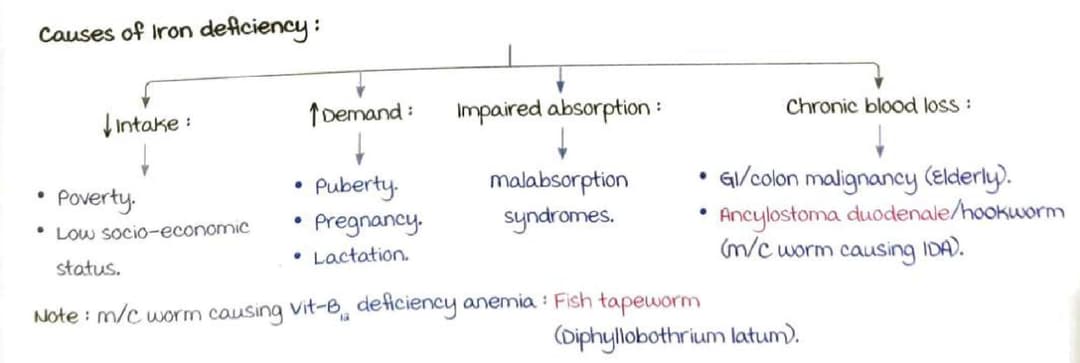 Causes of Iron deficiency :
↓Intake :
• Poverty.
• Low socio-economic
status.
↑Demand :
• Puberty.
• Pregnancy.
• Lactation.
Impaired absorption :
malabsorption
syndromes.
Chronic blood loss :
• GI/colon malignancy (Elderly).
• Ancylostoma duodenale/hookworm
(m/c worm causing IDA).
Note : m/c worm causing Vit-B₁₂ deficiency anemia : Fish tapeworm
(Diphyllobothrium latum).